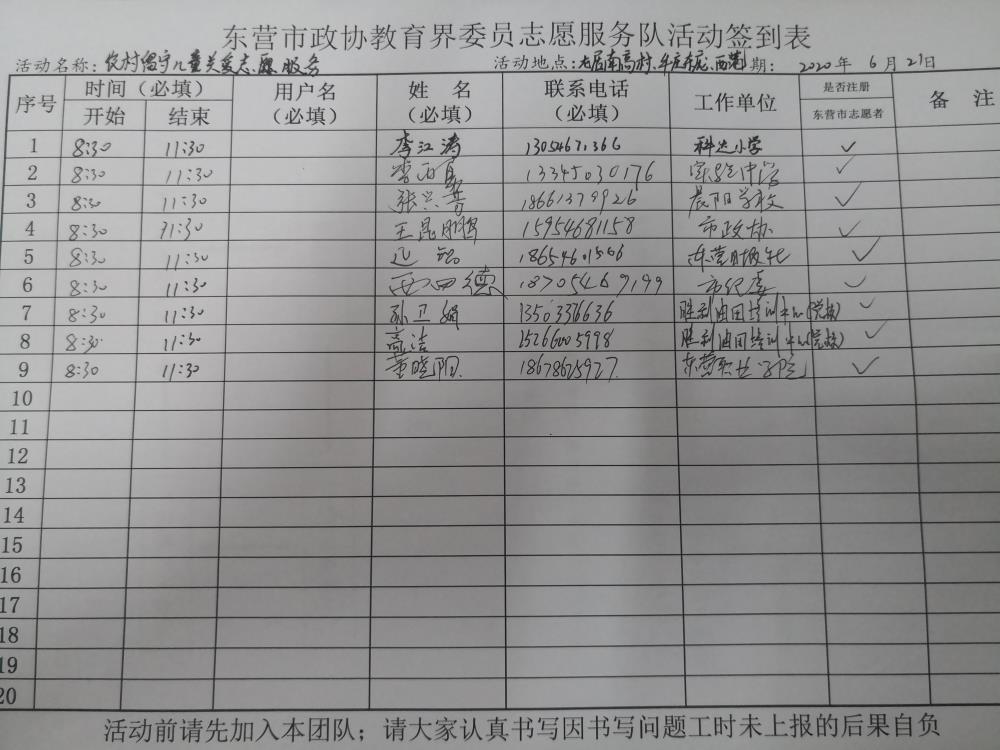 东营市政协教育界委员志愿服务队活动签到表
活动名称：农村留守儿童关爱志愿服务 活动地点： 期： 2020年 6月 21日
序号 时间（必填） 用户名（必填） 姓 名（必填） 联系电话（必填） 工作单位 是否注册 备 注
开始 结束 东营市志愿者
1 8:30 11:30 李江涛 13054671366 科达小学 ✓
2 8:30 11:30 13345030176 实验中学 ✓
3 8:30 11:30 张兴 18661379926 晨阳学校 ✓
4 8:30 11:30 王昆鹏 15954681158 市政协 ✓
5 8:30 11:30 东营日报社 ✓
6 8:30 11:30 德 18705469199 市纪委 ✓
7 8:30 11:30 孙卫娟 13503376636 胜利油田培训中心(党校) ✓
8 8:30 11:30 高洁 15266005998 胜利油田培训中心(党校) ✓
9 8:30 11:30 董晓阳 18678675927 东营职业学院 ✓
10
11
12
13
14
15
16
17
18
19
20
活动前请先加入本团队；请大家认真书写因书写问题工时未上报的后果自负